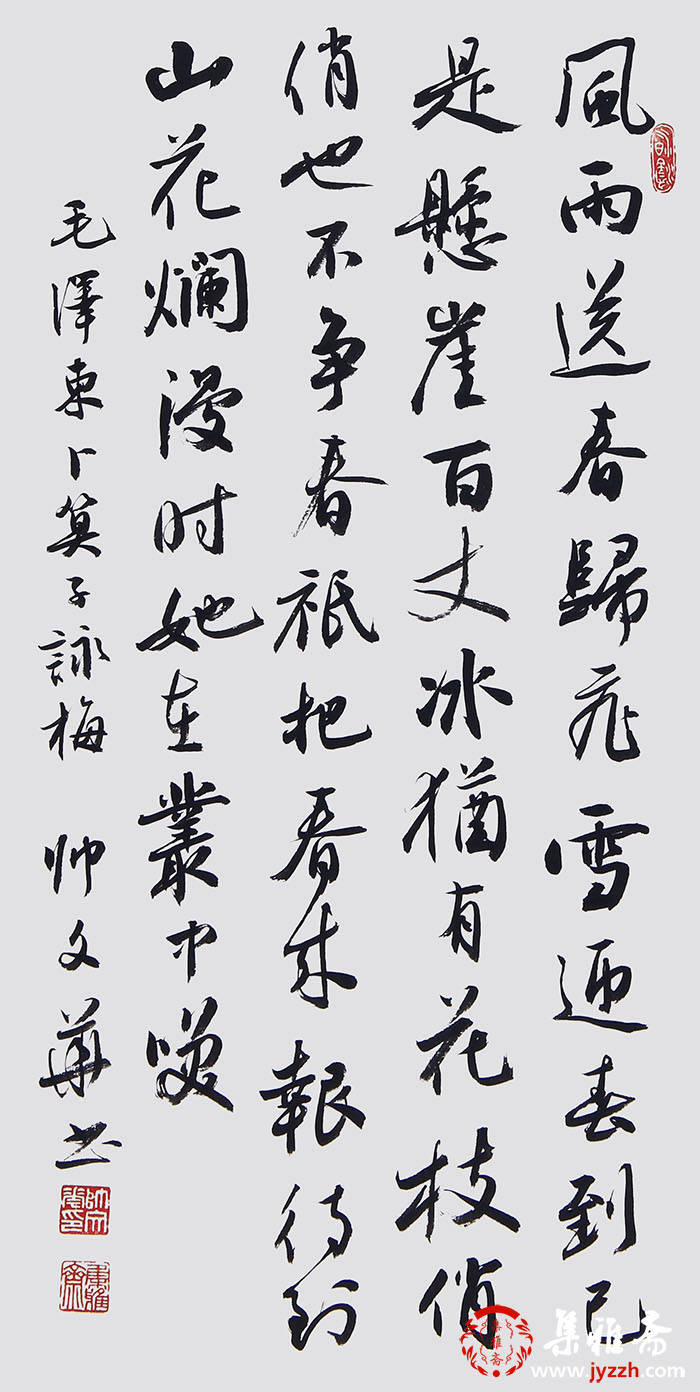 風雨送春歸飛雪迎春到已
是懸崖百丈冰猶有花枝俏
俏也不争春祇把春来報待到
山花爛漫时她在叢中咲
毛澤東卜算子詠梅 帅文華书
集雅斋
集雅斋
www.jyzzh.com